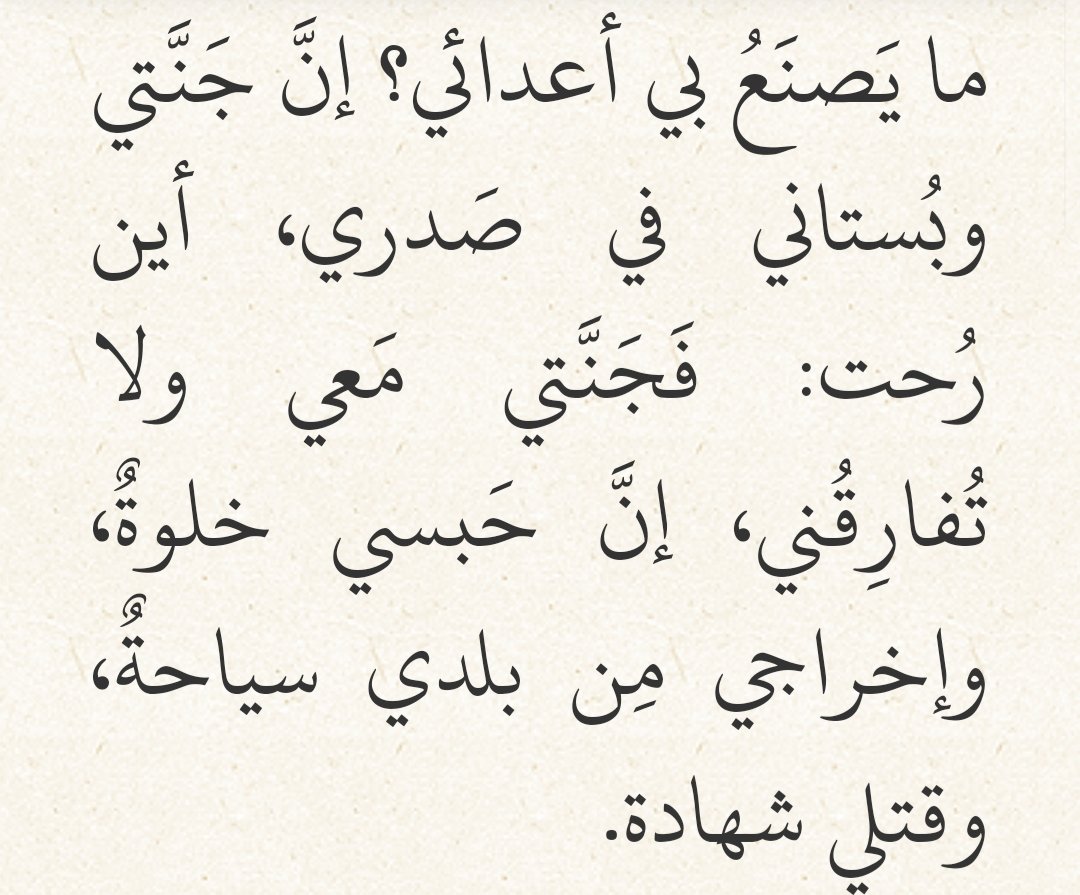 ما يَصنَعُ بي أعدائي؟ إنَّ جَنَّتي
وبُستاني في صَدري، أين
رُحت: فَجَنَّتي مَعي ولا
تُفارِقُني، إنَّ حَبسي خلوةٌ،
وإخراجي مِن بلدي سياحةٌ،
وقتلي شهادة.